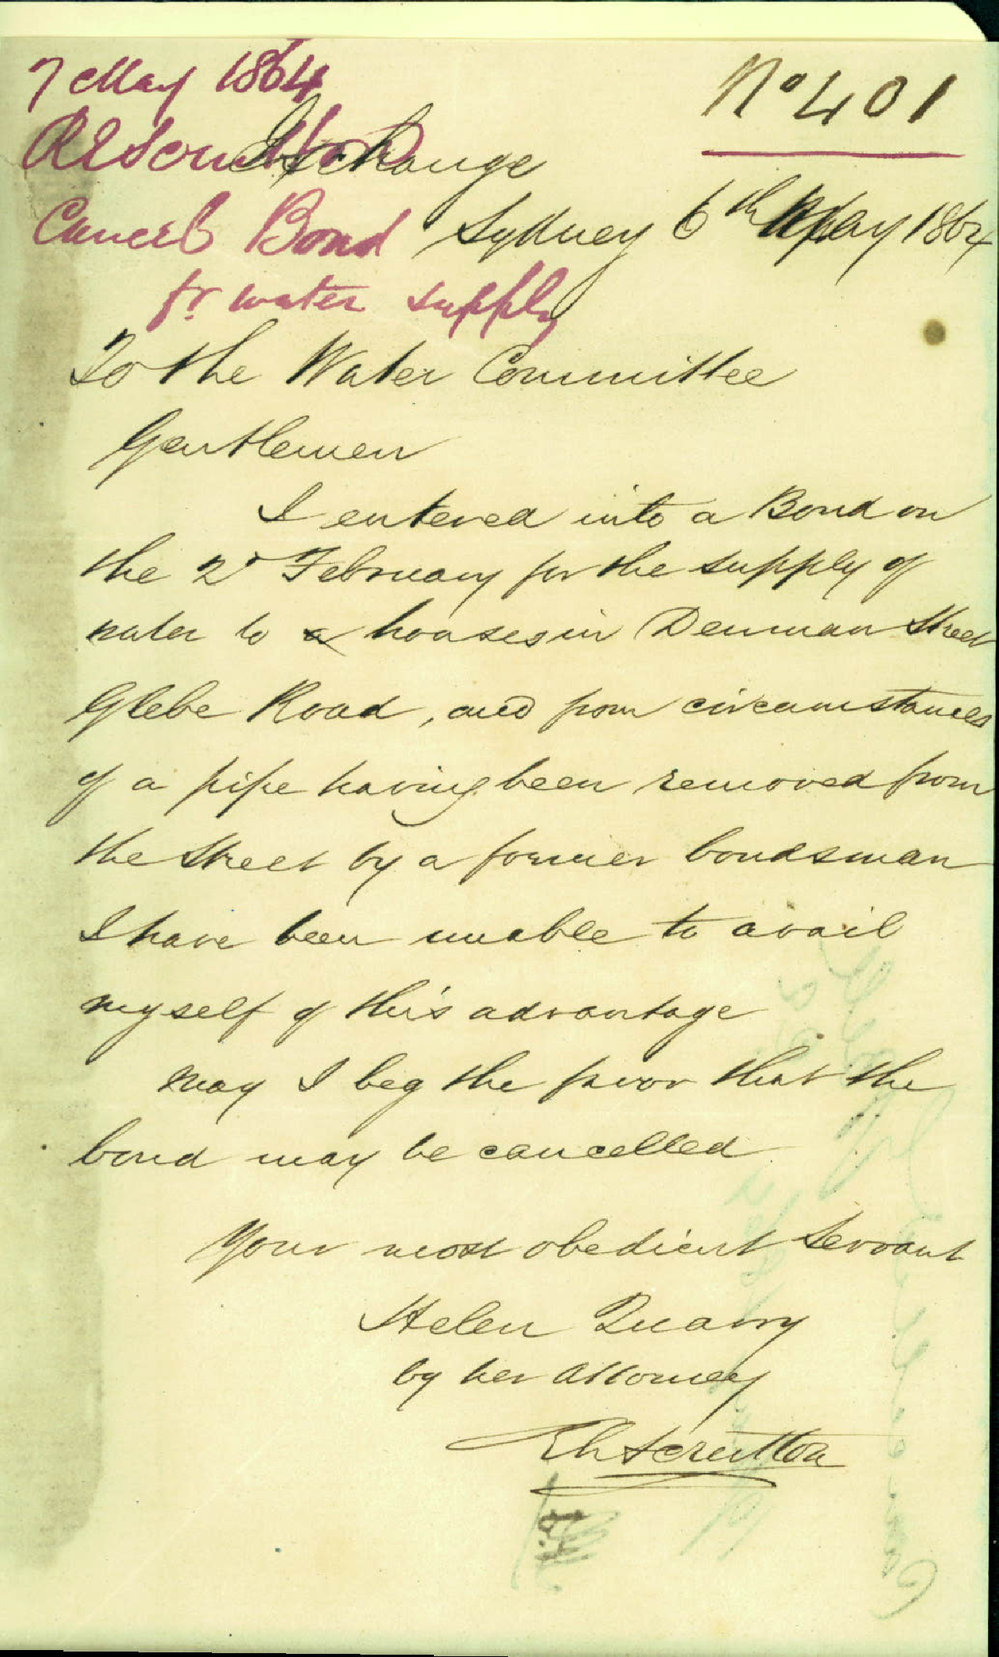 7 May 1864
No 401
R Scrutton
Exchange
Cancel Bond
Sydney 6th May 1864
fr. water supply
To the Water Committee
Gentlemen
I entered into a Bond on
the 2d February for the supply of
water to a houses in Denman Street
Glebe Road, and from circumstances
of a pipe having been removed from
the street by a former bondsman
I have been unable to avail
myself of this advantage
May I beg the favor that the
bond may be cancelled
Your most obedient servant
Helen Quarry
by her Attorney
Scrutton